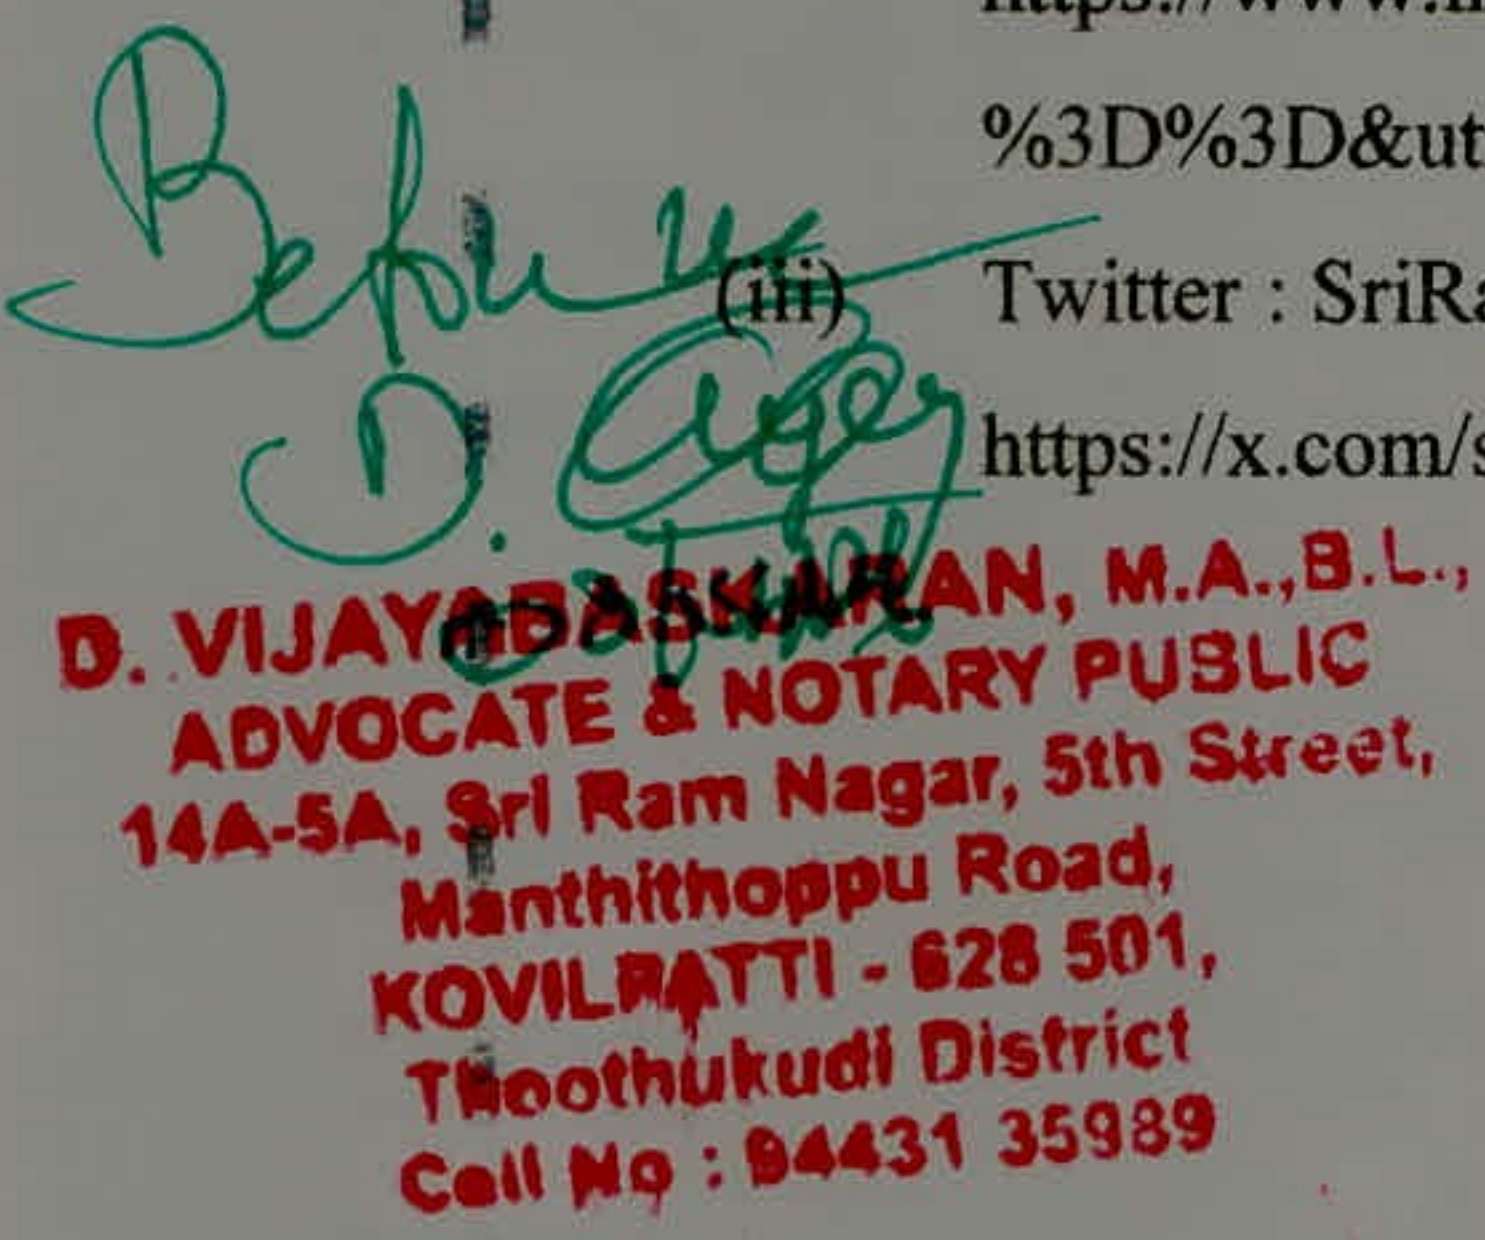 https://www.in
%3D%3D&ut
Before me
(iii) Twitter : SriRa
https://x.com/s
D.
D. VIJAYABASKARAN, M.A.,B.L.,
ADVOCATE & NOTARY PUBLIC
14A-5A, Sri Ram Nagar, 5th Street,
Manthithoppu Road,
KOVILPATTI - 628 501,
Thoothukudi District
Cell No : 94431 35989